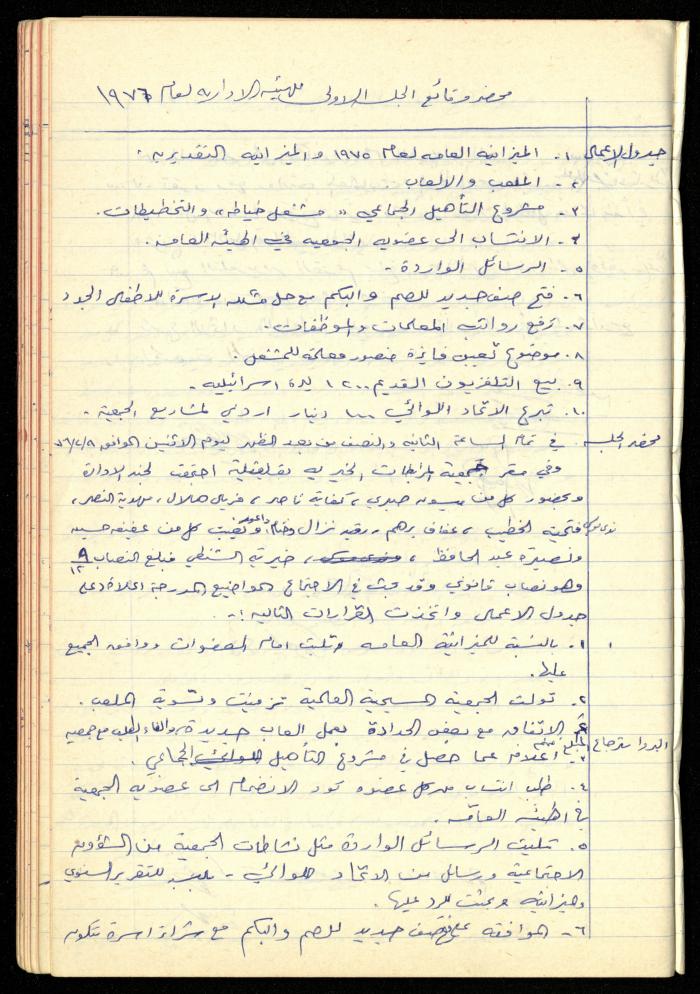 محضر وقائع الجلسة الاولى للهيئة الادارية لعام ١٩٧٦
جدول الاعمال ١. الميزانيه العامه لعام ١٩٧٥ والميزانيه التقديريه.
٢. الملعب والالعاب
٣. مشروع التأهيل الجماعي "مشغل خياطه" والتخطيطات.
٤. الانتساب الى عضويه الجمعيه في الهيئه العامه.
٥. الرسائل الواردة.
٦. فتح صف جديد للصم والبكم مع حل مشكله الاسرة للاطفال الجدد
٧. رفع رواتب المعلمات والموظفات.
٨. موضوع تعيين فايزة منصور معلمة للمشغل.
٩. بيع التلفزيون القديم ١٢٠٠ ليرة اسرائيليه.
١٠. تبرع الاتحاد اللوائي ١٠٠ دينار اردني لمشاريع الجمعية.
محضر الجلسه في تمام الساعة الثانيه والنصف من بعد الظهر ليوم الاثنين الموافق ٧٦/٢/٩
وفي مقر جمعية المرابطات الخيريه بقلقيلية اجتمعت لجنة الادارة
وبحضور كل من ميسونه صبري، كفايه ناصر، فريال هلال، مهدية النصر،
فتحية الخطيب، عفاف برهم، رقيه نزال وختام داعور وتغيبت كل من عفيفه حسين
ونصيرة عبد الحافظ، خيرية الشنطي فبلغ النصاب ٩/١٢
وهو نصاب قانوني وقد بحث في الاجتماع المواضيع المدرجة اعلاه على
جدول الاعمال واتخذت القرارات التاليه:-
١. بالنسبة للميزانية العامه تليت امام العضوات ووافق الجميع
عليها.
٢. تولت الجمعية المسيحية العالمية تزفيت وتسوية الملعب.
تم الاتفاق مع بعض الحدادة بعمل العاب جديدة، والغاء الطلب مع جمعيه
البر واسترجاع المبلغ منهم
٣. اعلاه عما حصل في مشروع التأهيل الجماعي.
٤. طلب انتساب من كل عضوه تود الانضمام الى عضويه الجمعية
في الهيئه العامه.
٥. تليت الرسائل الواردة مثل نشاطات الجمعية من الشؤون
الاجتماعية ورسائل من الاتحاد اللوائي - بالنسبه للتقرير السنوي
والميزانيه وبعثت للرد عليها.
٦- الموافقه على فتح صف جديد للصم والبكم مع شراء اسرة تتكون